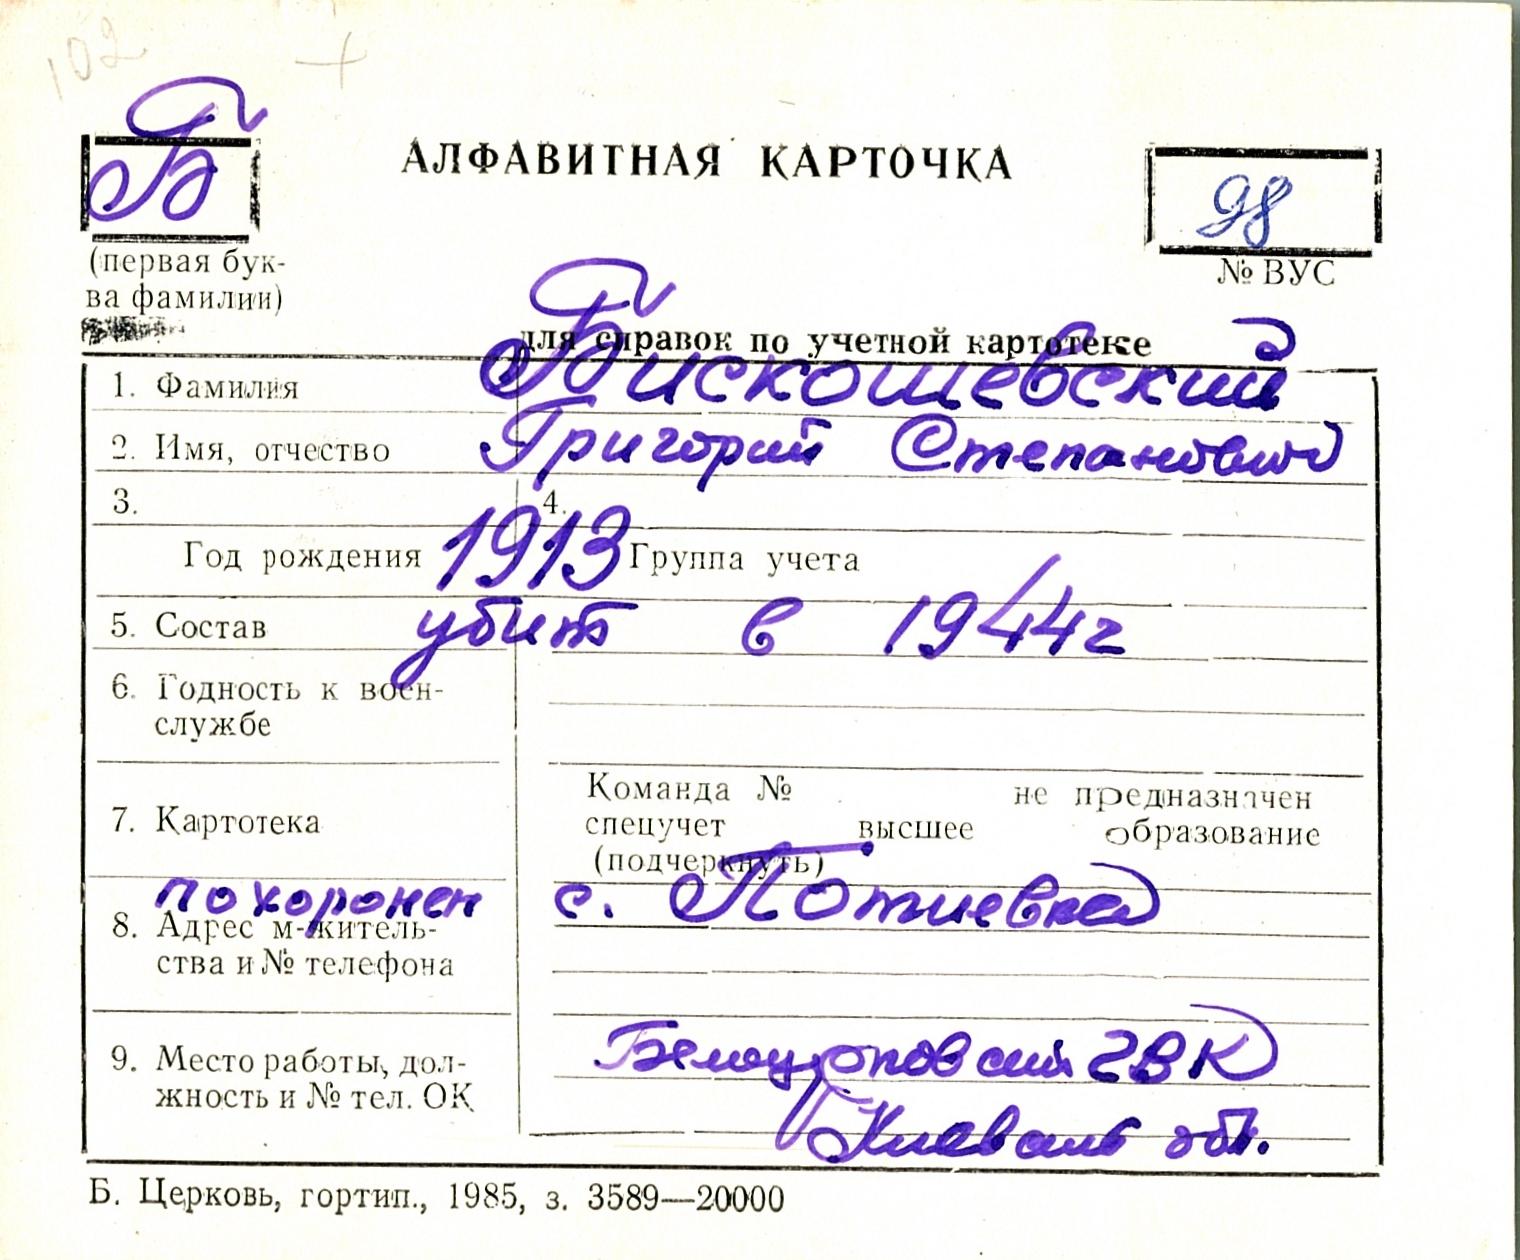 102 +
Б
АЛФАВИТНАЯ КАРТОЧКА
98
(первая бук-
ва фамилии)
№ ВУС
для справок по учетной картотеке
1. Фамилия Бискошевский
2. Имя, отчество Григорий Степанович
3. 4.
Год рождения 1913 Группа учета
5. Состав убит в 1944г
6. Годность к воен-
службе
Команда № не предназначен
7. Картотека спецучет высшее образование
(подчеркнуть)
похоронен с. Потиевка
8. Адрес м-житель-
ства и № телефона
9. Место работы, дол-
жность и № тел. ОК
ГВК
Киевская обл.
Б. Церковь, гортип., 1985, з. 3589—20000